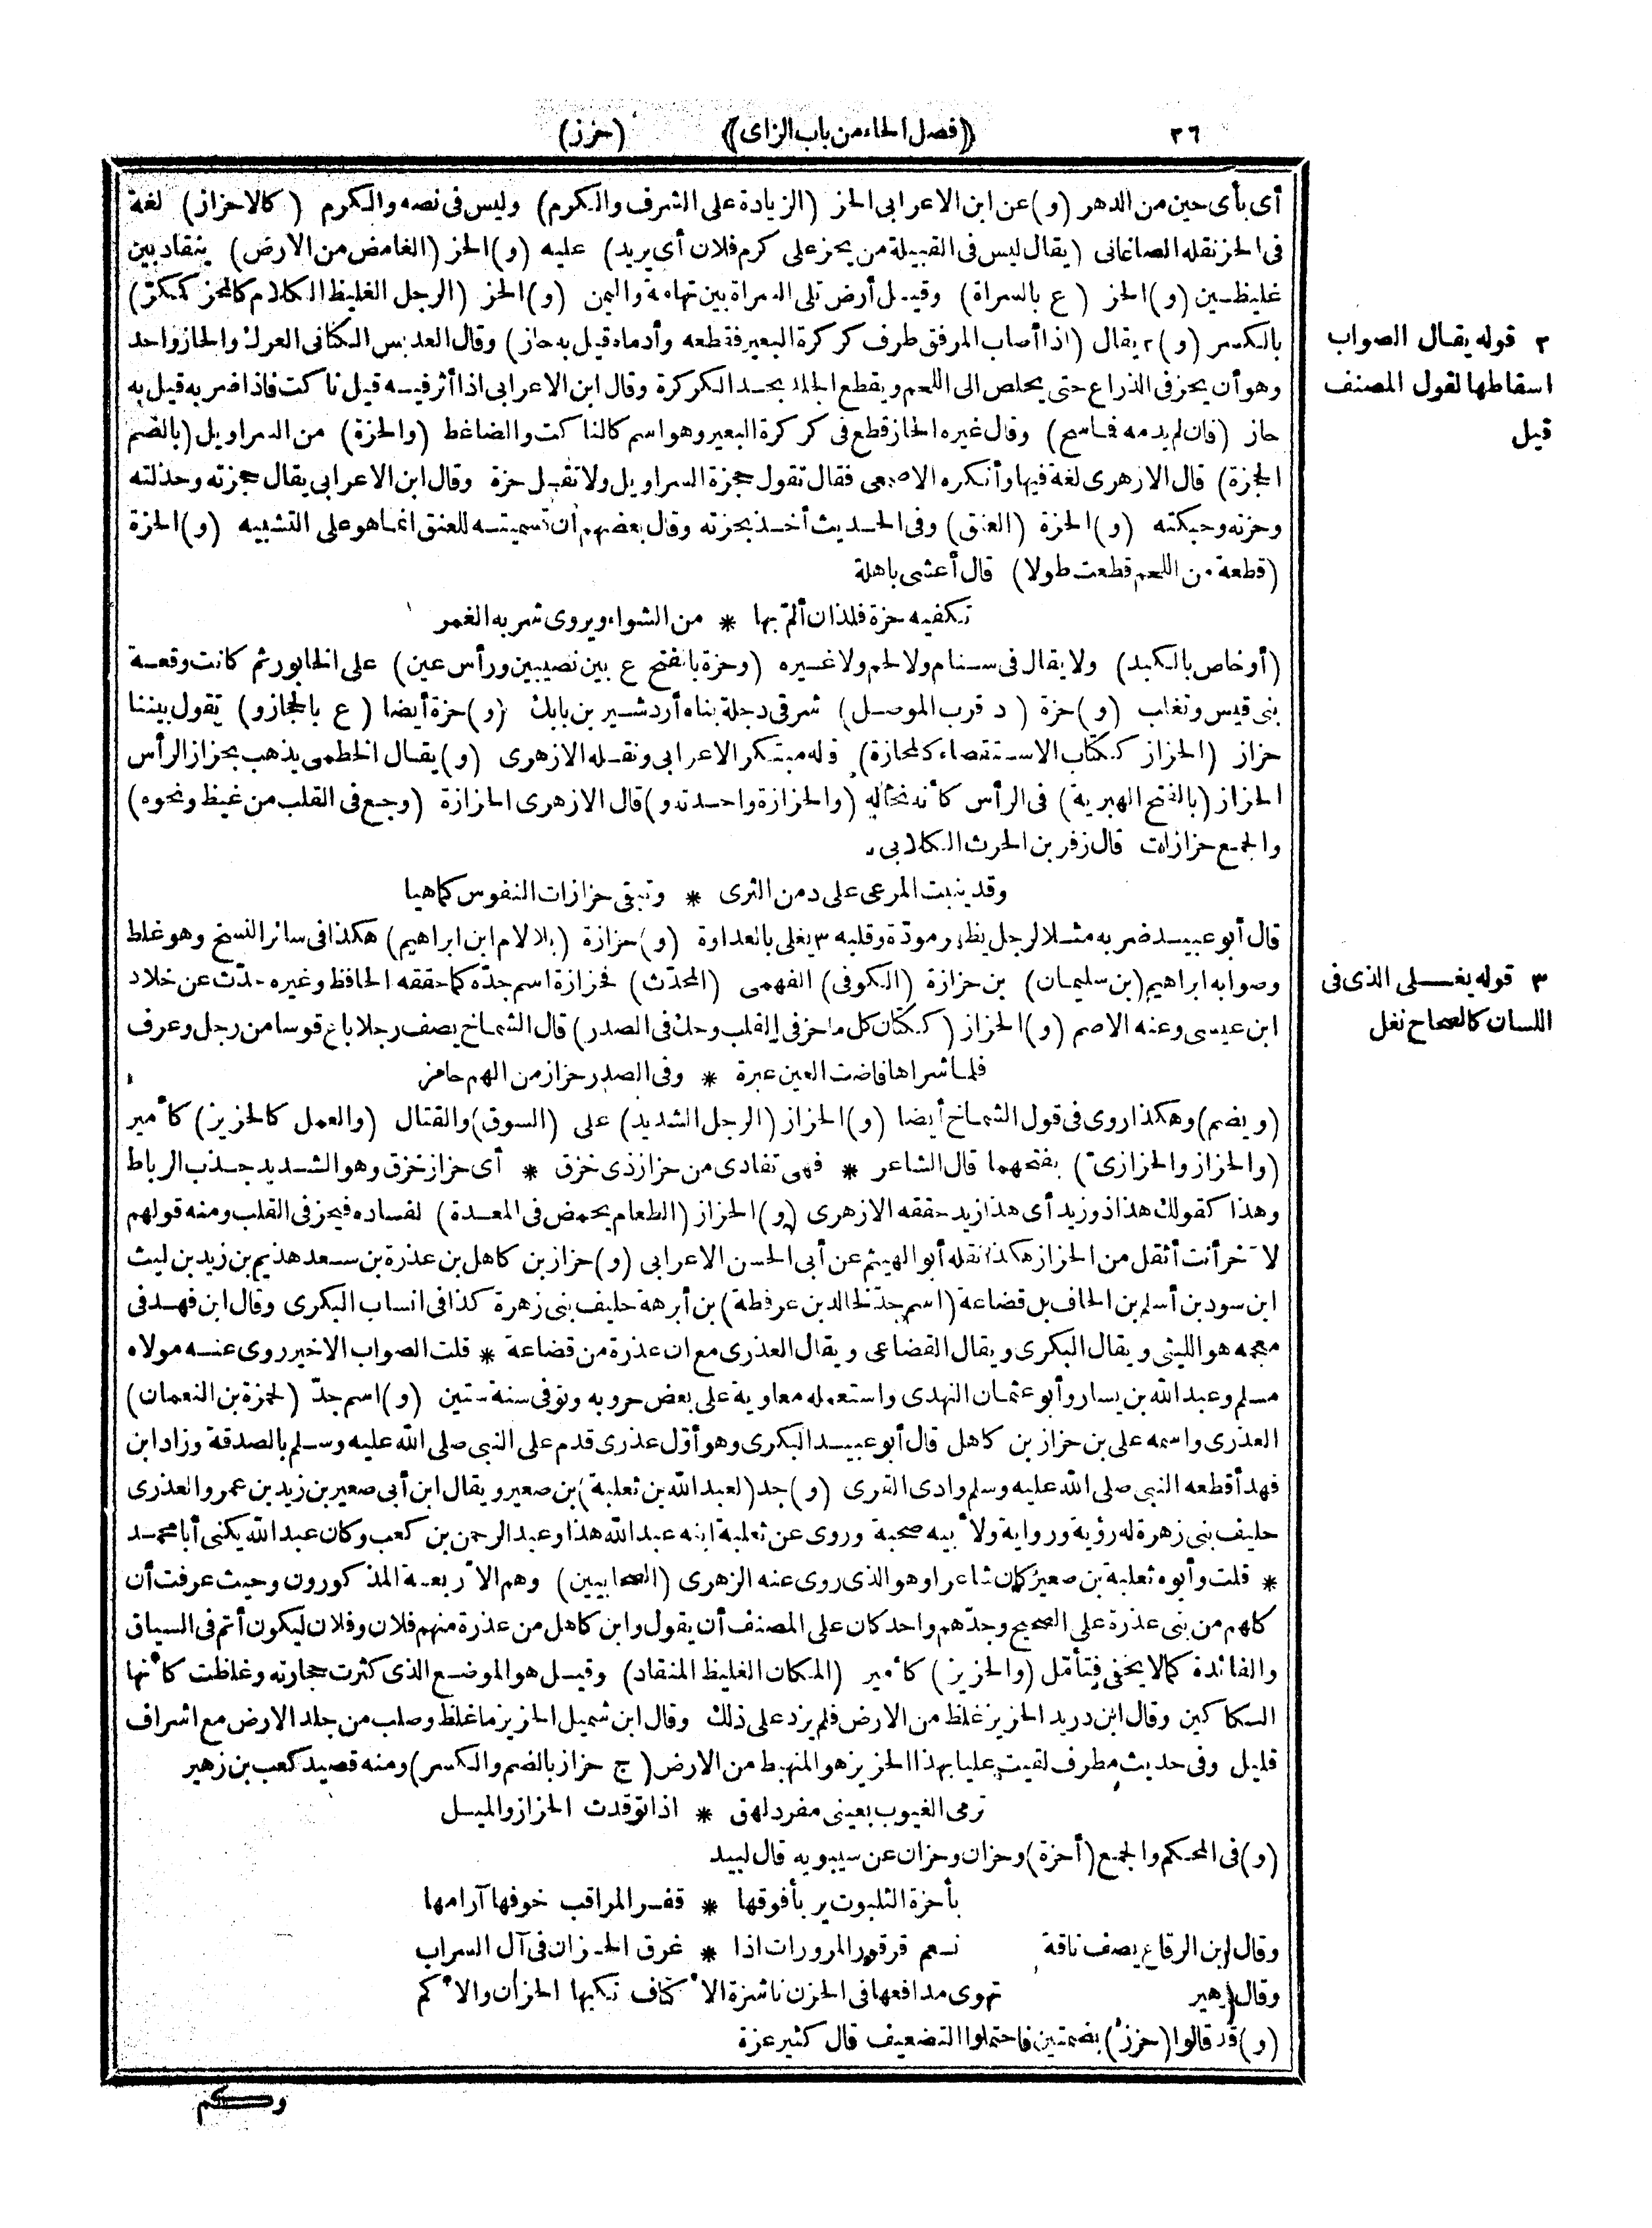 ٢٦ ⟪فصل الحاء من باب الزاى⟫ (حزز)
أى بأى حين من الدهر (و) عن ابن الاعرابى الحز (الزيادة على الشرف والكرم) وليس فى نصه والكرم (كالاحزاز) لغة
فى الحز نقله الصاغانى (يقال ليس فى القبيلة من يحز على كرم فلان أى يريد) عليه (و) الحز (الغامض من الارض) ينقاد بين
غليظين (و) الحز (ع بالسراة) وقيل أرض تلى السراة بين تهامة واليمن (و) الحز (الرجل الغليظ الكلام كالمحز كمكرّ)
بالكسر (و) ٢ يقال (اذا أصاب المرفق طرف كركرة البعير فقطعه وأدماه قيل به حاز) وقال العدبس الكنانى العرك والحاز واحد
وهو أن يحز فى الذراع حتى يخلص الى اللحم ويقطع الجلد بحد الكركرة وقال ابن الاعرابى اذا أثر فيه قيل ناكت فاذا ضر به قيل به
حاز (فان لم يدمه فماسح) وقال غيره الحاز قطع فى كركرة البعير وهو اسم كالناكت والضاغط (والحزة) من السراويل (بالضم
الحجزة) قال الازهرى لغة فيها وأنكره الاصمعى فقال تقول حجزة السراويل ولا تقل حزة وقال ابن الاعرابى يقال حجزته وحذلته
وحزته وحبكته (و) الحزة (العنق) وفى الحديث أخذ بحزته وقال بعضهم أن تسميته للعنق انما هو على التشبيه (و) الحزة
(قطعة من اللحم قطعت طولا) قال أعشى باهلة
تكفيه حزة فلذان ألمّ بها * من الشواء ويروى شربه الغمر
(أو خاص بالكبد) ولا يقال فى سنام ولا لحم ولا غيره (وحزة بالفتح ع بين نصيبين ورأس عين) على الخابور ثم كانت وقعة
بنى قيس وتغلب (و) حزة (د قرب الموصل) شرقى دجلة بناه أردشير بن بابك (و) حزة أيضا (ع بالحجاز و) تقول بيننا
حزاز (الحزاز ككتاب الاستقصاء كالمحازة) وله مبتكر الاعرابى ونقله الازهرى (و) يقال الخطمى يذهب بحزاز الرأس
الحزاز (بالفتح الهبرية) فى الرأس كأنه نخالة (والحزازة واحدته و) قال الازهرى الحزازة (وجع فى القلب من غيظ ونحوه)
والجمع حزازات قال زفر بن الحرث الكلابى
وقد ينبت المرعى على دمن الثرى * وتبقى حزازات النفوس كماهيا
قال أبو عبيد ضربه مثلا لرجل يظهر مودّة وقلبه ٣ يغلى بالعداوة (و) حزازة (بلا لام ابن ابراهيم) هكذا فى سائر النسخ وهو غلط
وصوابه ابراهيم (بن سليمان) بن حزازة (الكوفى) الفهمى (المحدّث) فحزازة اسم جدّه كما حققه الحافظ وغيره حدّث عن خلاد
ابن عيسى وعنه الاصم (و) الحزاز (ككتان كل ما حز فى القلب وحك فى الصدر) قال الشماخ يصف رجلا باع قوسا من رجل وعرف
فلما شراها فاضت العين عبرة * وفى الصدر حزاز من الهم حامز
(ويضم) وهكذا روى فى قول الشماخ أيضا (و) الحزاز (الرجل الشديد) على (السوق) والقتال (والعمل كالحزيز) كأمير
(والحزاز والحزازى) بفتحهما قال الشاعر * فهى تفادى من حزاز ذى خزق * أى حزاز خزق وهو الشديد جذب الرباط
وهذا كقولك هذا ذو زيد أى هذا زيد حققه الازهرى (و) الحزاز (الطعام يحمض فى المعدة) لفساده فيحز فى القلب ومنه قولهم
لآخر أنت أثقل من الحزاز هكذا نقله أبو الهيثم عن أبى الحسن الاعرابى (و) حزاز بن كاهل بن عذرة بن سعد هذيم بن زيد بن ليث
ابن سود بن أسلم بن الحاف بل قضاعة (اسم جدّ لخالد بن عرفطة) بن أبرهة حليف بنى زهرة كذا فى انساب البكرى وقال ابن فهد فى
معجمه هو الليثى ويقال البكرى ويقال القضاعى ويقال العذرى مع ان عذرة من قضاعة * قلت الصواب الاخير روى عنه مولاه
مسلم وعبد الله بن يسار وأبو عثمان النهدى واستعمله معاوية على بعض حروبه وتوفى سنة ستين (و) اسم جدّ (لحمزة بن النعمان)
العذرى واسمه على بن حزاز بن كاهل قال أبو عبيد البكرى وهو أوّل عذرى قدم على النبى صلى الله عليه وسلم بالصدقة وزاد ابن
فهد أقطعه النبى صلى الله عليه وسلم وادى القرى (و) جد (لعبد الله بن ثعلبة) بن صعير ويقال ابن أبى صعير بن زيد بن عمرو العذرى
حليف بنى زهرة له رؤية ورواية ولأبيه صحبة وروى عن ثعلبة ابنه عبد الله هذا وعبد الرحمن بن كعب وكان عبد الله يكنى أبا محمد
* قلت وأبوه ثعلبة بن صعير كان شاعرا وهو الذى روى عنه الزهرى (الصحابيين) وهم الأربعة المذكورون وحيث عرفت أن
كلهم من بنى عذرة على الصحيح وجدّهم واحد كان على المصنف أن يقول وابن كاهل من عذرة منهم فلان وفلان ليكون أتم فى السياق
والفائدة كما لا يخفى فتأمّل (والحزيز) كأمير (المكان الغليظ المنقاد) وقيل هو الموضع الذى كثرت حجارته وغلظت كأنها
السكاكين وقال ابن دريد الحزيز غلظ من الارض فلم يزد على ذلك وقال ابن شميل الحزيز ما غلظ وصلب من جلد الارض مع اشراف
قليل وفى حديث مطرف لقيت عليا بهذا الحزيز هو المنهبط من الارض (ج حزاز بالضم والكسر) ومنه قصيد كعب بن زهير
ترمى الغيوب بعينى مفرد لهق * اذا توقدت الحزاز والميل
(و) فى المحكم والجمع (أحزة) وحزان وحزان عن سيبويه قال لبيد
بأحزة الثلبوت يربأ فوقها * قفر المراقب خوفها آرامها
وقال ابن الرقاع يصف ناقة نعم قرقور المرورات اذا * غرق الحزان فى آل السراب
وقال زهير تهوى مدافعها فى الحزن ناشزة الأ كتاف نكبها الحزان والأكم
(و) قد قالوا (حزز) بضمتين فاحتملوا التضعيف قال كثير عزة
وكم
٢ قوله يقال الصواب
اسقاطها لقول المصنف
قيل
٣ قوله يغلى الذى فى
اللسان كالصحاح نغل